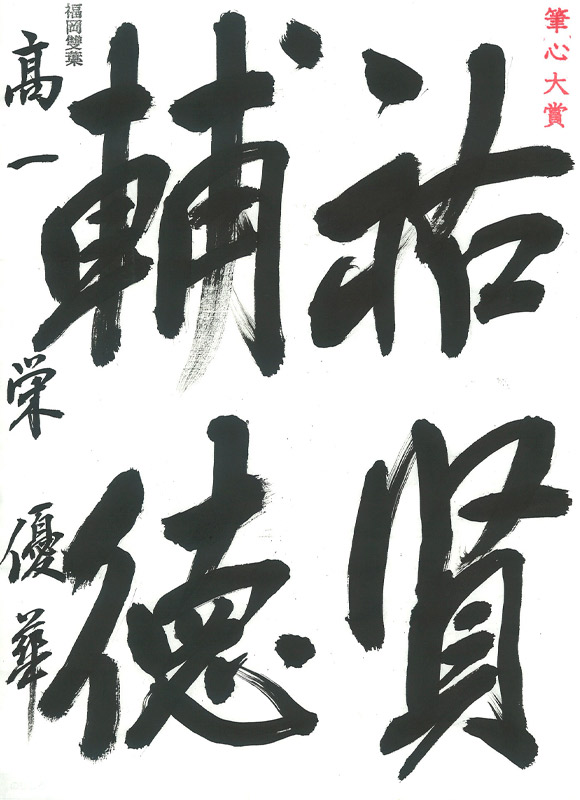 筆心大賞
祐賢
輔徳
福岡雙葉
高一 栄 優華